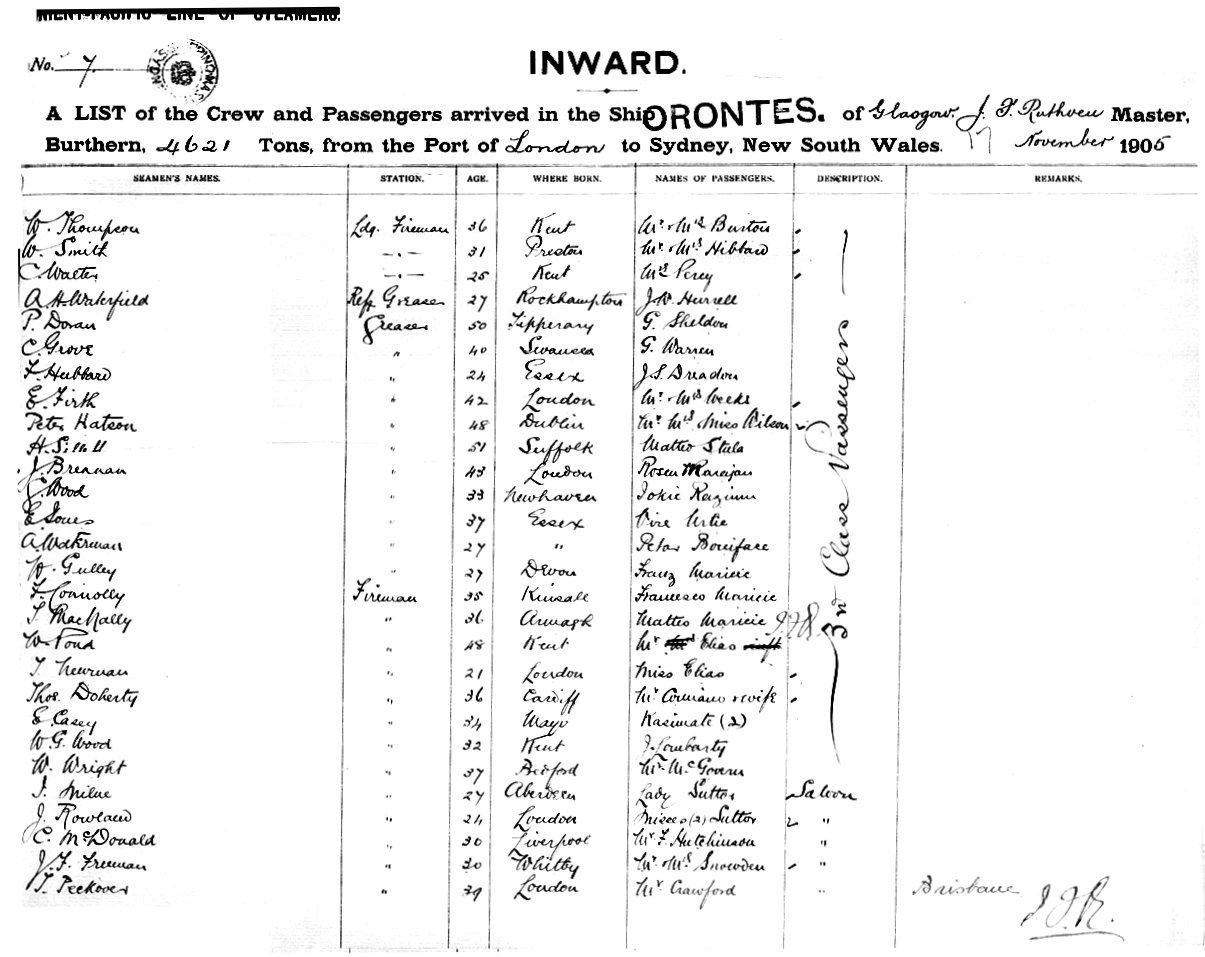 ORIENT-PACIFIC LINE OF STEAMERS.
No. 7.
INWARD.
A LIST of the Crew and Passengers arrived in the Ship ORONTES. of Glasgow. J. F. Ruthven Master,
Burthern, 4621 Tons, from the Port of London to Sydney, New South Wales. 17 November 1905
SEAMEN'S NAMES. STATION. AGE. WHERE BORN. NAMES OF PASSENGERS. DESCRIPTION. REMARKS.
W. Thompson Ldg. Fireman 36 Kent Mr. & Mrs Burton
W. Smith —.— 31 Preston Mr. & Mrs Hibbard
C. Walter —.— 25 Kent Mrs Percy
A. H. Waterfield Refr Greaser 27 Rockhampton J. W. Hurrell
P. Doran Greaser 50 Tipperary G. Sheldon
C. Grove " 40 Swansea G. Warren
F. Hubbard " 24 Essex J. S. Dreadon
E. Firth " 42 London Mr. & Mrs Weeks
Peter Hatson " 48 Dublin Mr Mrs Miss Wilson
H. " 51 Suffolk Matteo
J. Brennan " 43 London
Wood " 33 Newhaven
E. Jones " 37 Essex
A. Waterman " 27 " Petar Boniface
W. Gulley " 27 Devon Franz Maricic
F. Connolly Fireman 35 Kinsale Francesco Maricic
T. MacNally " 36 Armagh Matteo Maricic
W. Pond " 48 Kent Mr Elias
T. Newman " 21 London Miss Elias
Thos. Doherty " 36 Cardiff Mr & wife
E. Casey " 34 Mayo Kasimate (2)
W. G. Wood " 32 Kent J. Lombarty
W. Wright " 37 Bedford Mr. McGovern
J. Milne " 27 Aberdeen Lady Suttor Saloon
J. Rowland " 24 London Misses (2) Suttor 2 "
C. McDonald " 30 Liverpool Mr F. Hutchinson "
J. F. Freeman " 30 Whitby Mr. & Mrs Snowden "
T. Peckover " 39 London Mr Crawford " Brisbane
3rd Class Passengers
J. F. R.
J. F. R.